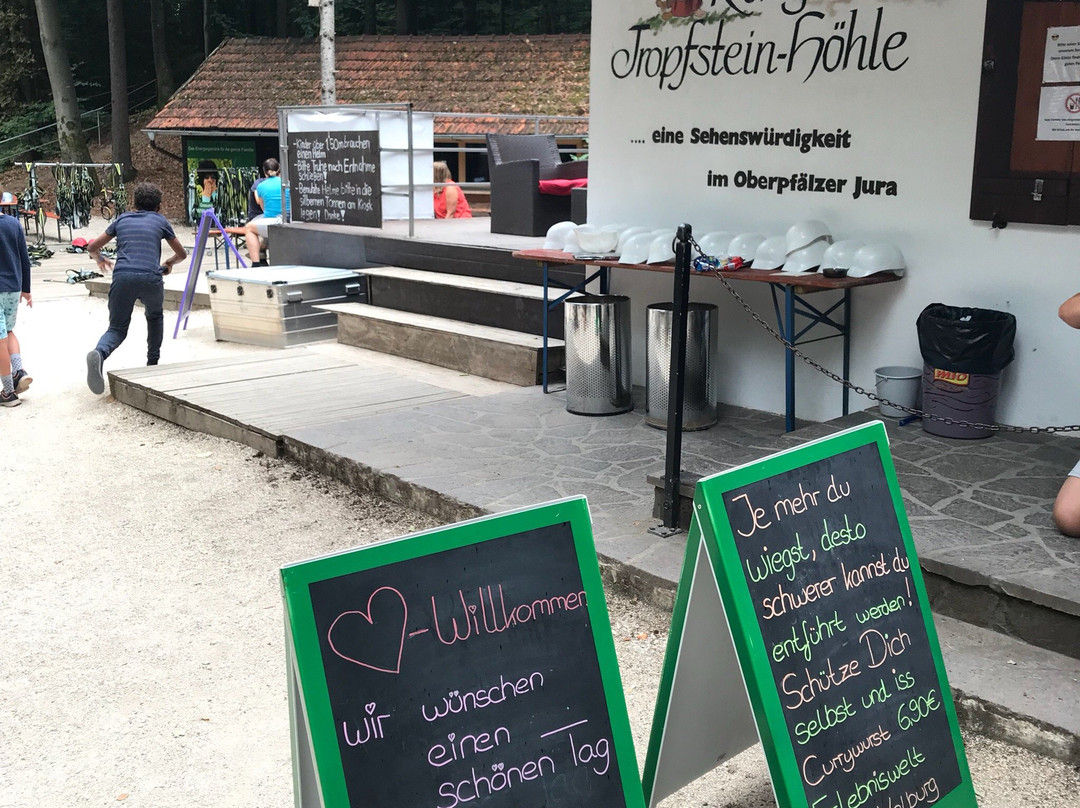 Tropfstein-Höhle
.... eine Sehenswürdigkeit
im Oberpfälzer Jura
-Kinder über 150cm brauchen
einen Helm
-Bitte Truhe nach Entnahme
schließen!
-Benutzte Helme bitte in die
silbernen Tonnen am Kiosk
legen! Danke!
-Willkommen
wir wünschen
einen
schönen Tag
Je mehr du
wiegst, desto
schwerer kannst du
entführt werden!
Schütze Dich
selbst und iss
Currywurst 6,90€
Erlebniswelt